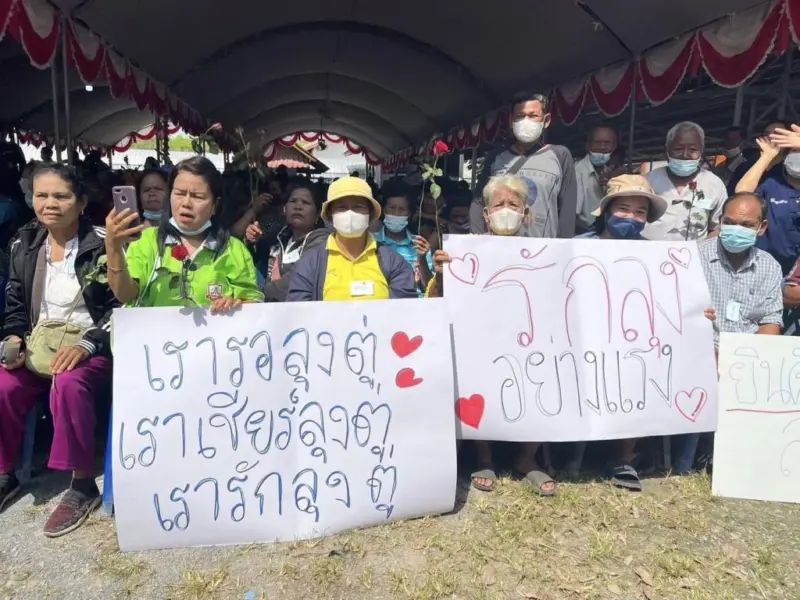 เรารอลุงตู่
เราเชียร์ลุงตู่
เรารักลุงตู่
รักลุง
อย่างแรง